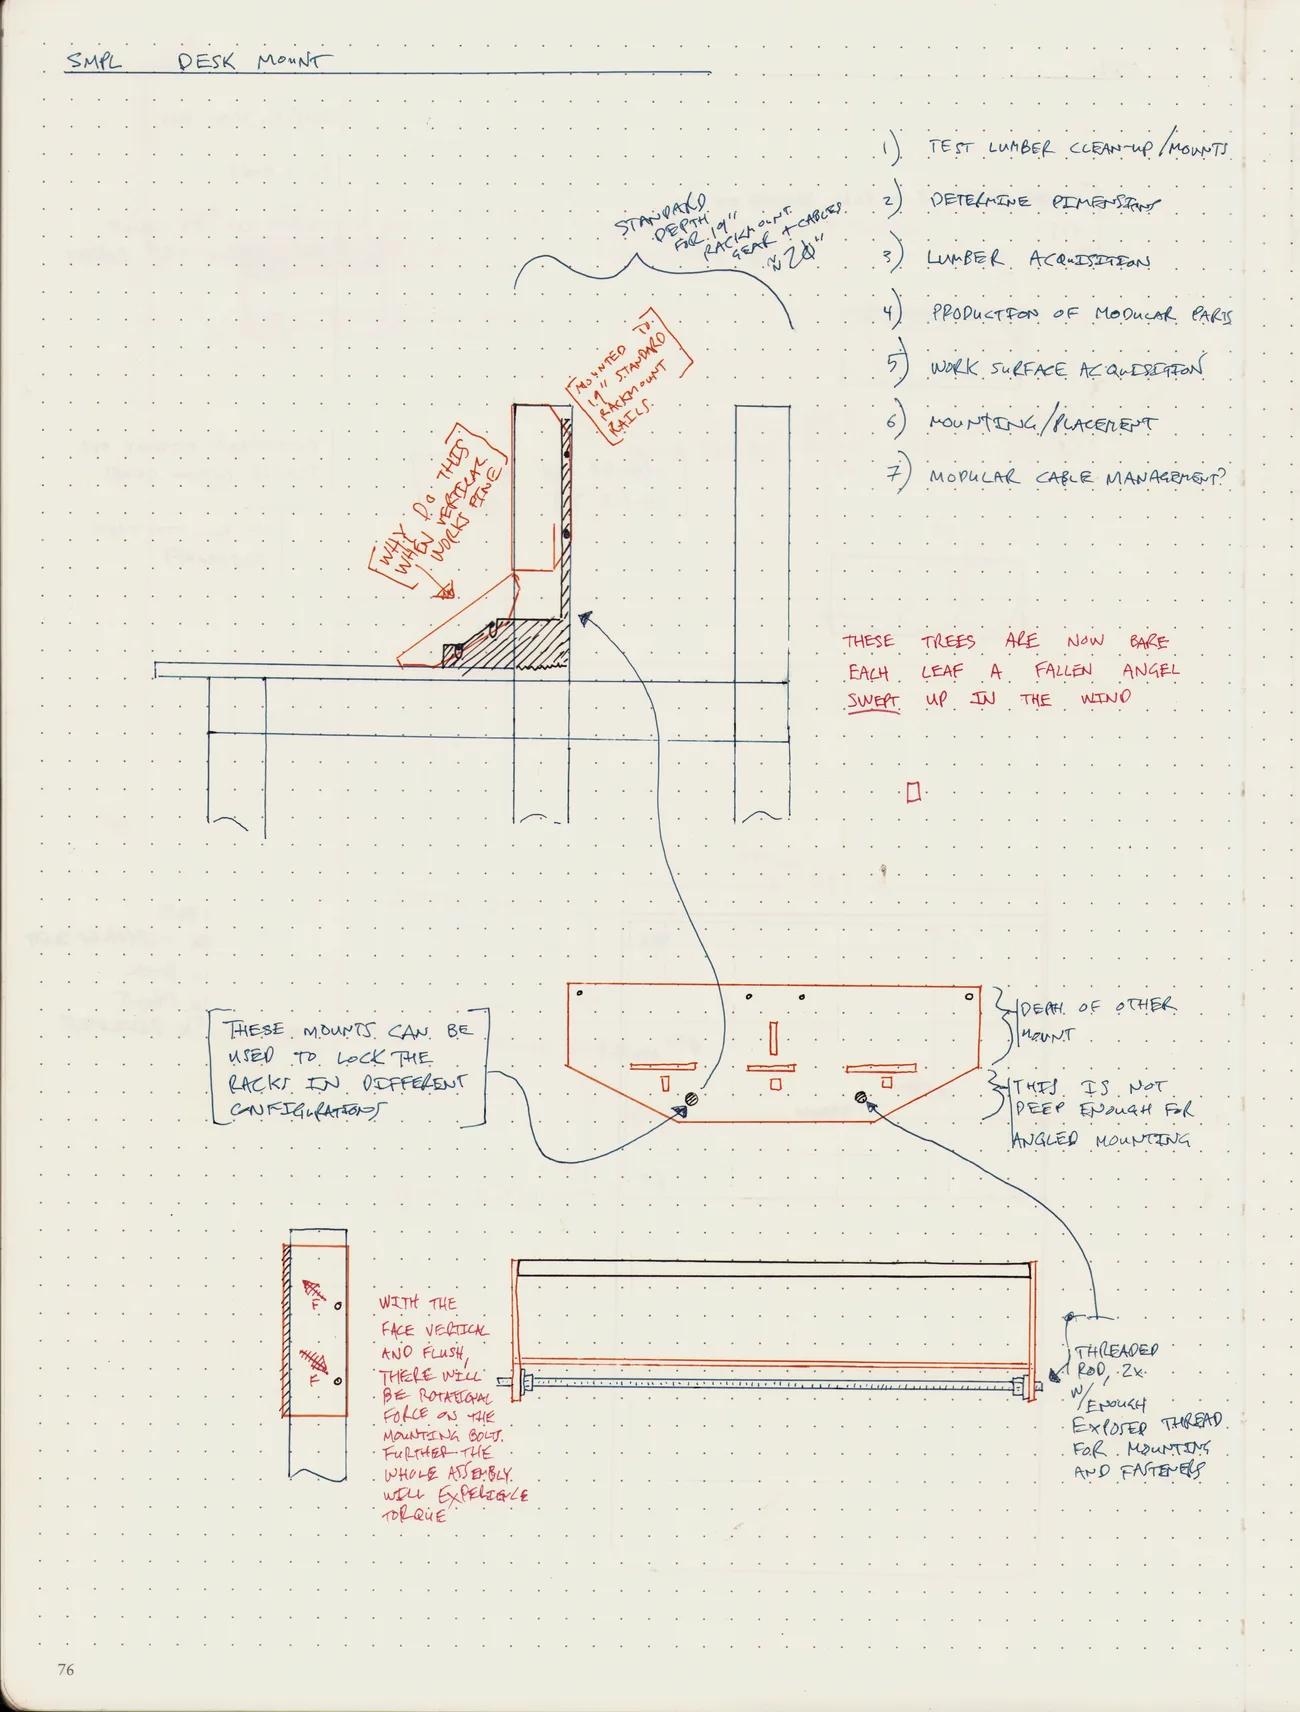 SMPL DESK MOUNT
1) TEST LUMBER CLEAN-UP/MOUNTS
2) DETERMINE DIMENSIONS
3) LUMBER ACQUISITION
4) PRODUCTION OF MODULAR PARTS
5) WORK SURFACE ACQUISITION
6) MOUNTING/PLACEMENT
7) MODULAR CABLE MANAGEMENT?
STANDARD
DEPTH
FOR 19"
RACKMOUNT
GEAR + CABLES
≈ 20"
[MOUNTED TO
19" STANDARD
RACKMOUNT
RAILS.]
[WHY DO THIS
WHEN VERTICAL
WORKS FINE]
THESE TREES ARE NOW BARE
EACH LEAF A FALLEN ANGEL
SWEPT UP IN THE WIND
[THESE MOUNTS CAN BE
USED TO LOCK THE
RACKS IN DIFFERENT
CONFIGURATIONS]
DEPTH OF OTHER
MOUNT
THIS IS NOT
DEEP ENOUGH FOR
ANGLED MOUNTING
F
F
WITH THE
FACE VERTICAL
AND FLUSH,
THERE WILL
BE ROTATIONAL
FORCE ON THE
MOUNTING BOLTS.
FURTHER THE
WHOLE ASSEMBLY
WILL EXPERIENCE
TORQUE
THREADED
ROD, 2x
W/ENOUGH
EXPOSED THREAD
FOR MOUNTING
AND FASTENERS
76